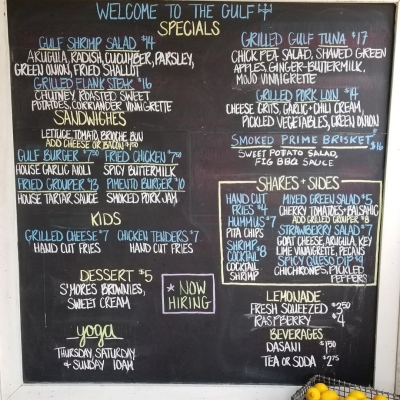 WELCOME TO THE GULF
SPECIALS
GULF SHRIMP SALAD $14
ARUGULA, RADISH, CUCUMBER, PARSLEY,
GREEN ONION, FRIED SHALLOT
GRILLED FLANK STEAK $16
CHUTNEY ROASTED SWEET
POTATOES, CORRIANDER VINAIGRETTE
GRILLED GULF TUNA $17
CHICK PEA SALAD, SHAVED GREEN
APPLES, GINGER-BUTTERMILK,
MOJO VINAIGRETTE
GRILLED PORK LOIN $14
CHEESE GRITS, GARLIC + CHILI CREAM,
PICKLED VEGETABLES, GREEN ONION
SMOKED PRIME BRISKET $16
SWEET POTATO SALAD,
FIG BBQ SAUCE
SANDWICHES
LETTUCE, TOMATO, BRIOCHE BUN
ADD CHEESE OR BACON $1.50
GULF BURGER $7.50
HOUSE GARLIC AIOLI
FRIED CHICKEN $7.50
SPICY BUTTERMILK
FRIED GROUPER $13
HOUSE TARTAR SAUCE
PIMENTO BURGER $10
SMOKED PORK JAM
KIDS
GRILLED CHEESE $7
HAND CUT FRIES
CHICKEN TENDERS $7
HAND CUT FRIES
DESSERT $5
S'MORES BROWNIES,
SWEET CREAM
* NOW
HIRING
yoga
THURSDAY, SATURDAY
& SUNDAY 10AM
SHARES + SIDES
HAND CUT
FRIES $4
HUMMUS $7
PITA CHIPS
SHRIMP
COCKTAIL $8
COCKTAIL
SHRIMP
MIXED GREEN SALAD $5
CHERRY TOMATOES + BALSAMIC
ADD GRILLED GROUPER $8
STRAWBERRY SALAD $7
GOAT CHEESE, ARUGULA, KEY
LIME VINAIGRETTE, PECANS
SPICY QUESO DIP $9
CHICHRONES, PICKLED
PEPPERS
LEMONADE
FRESH SQUEEZED $3.50
RASPBERRY $4
BEVERAGES
DASANI $1.50
TEA OR SODA $2.75